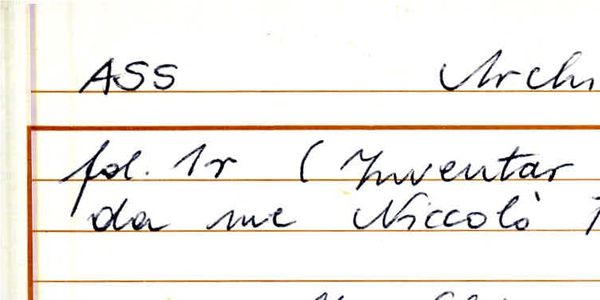 ASS Archi
fol. 1r ( Inventar
da me Niccolò